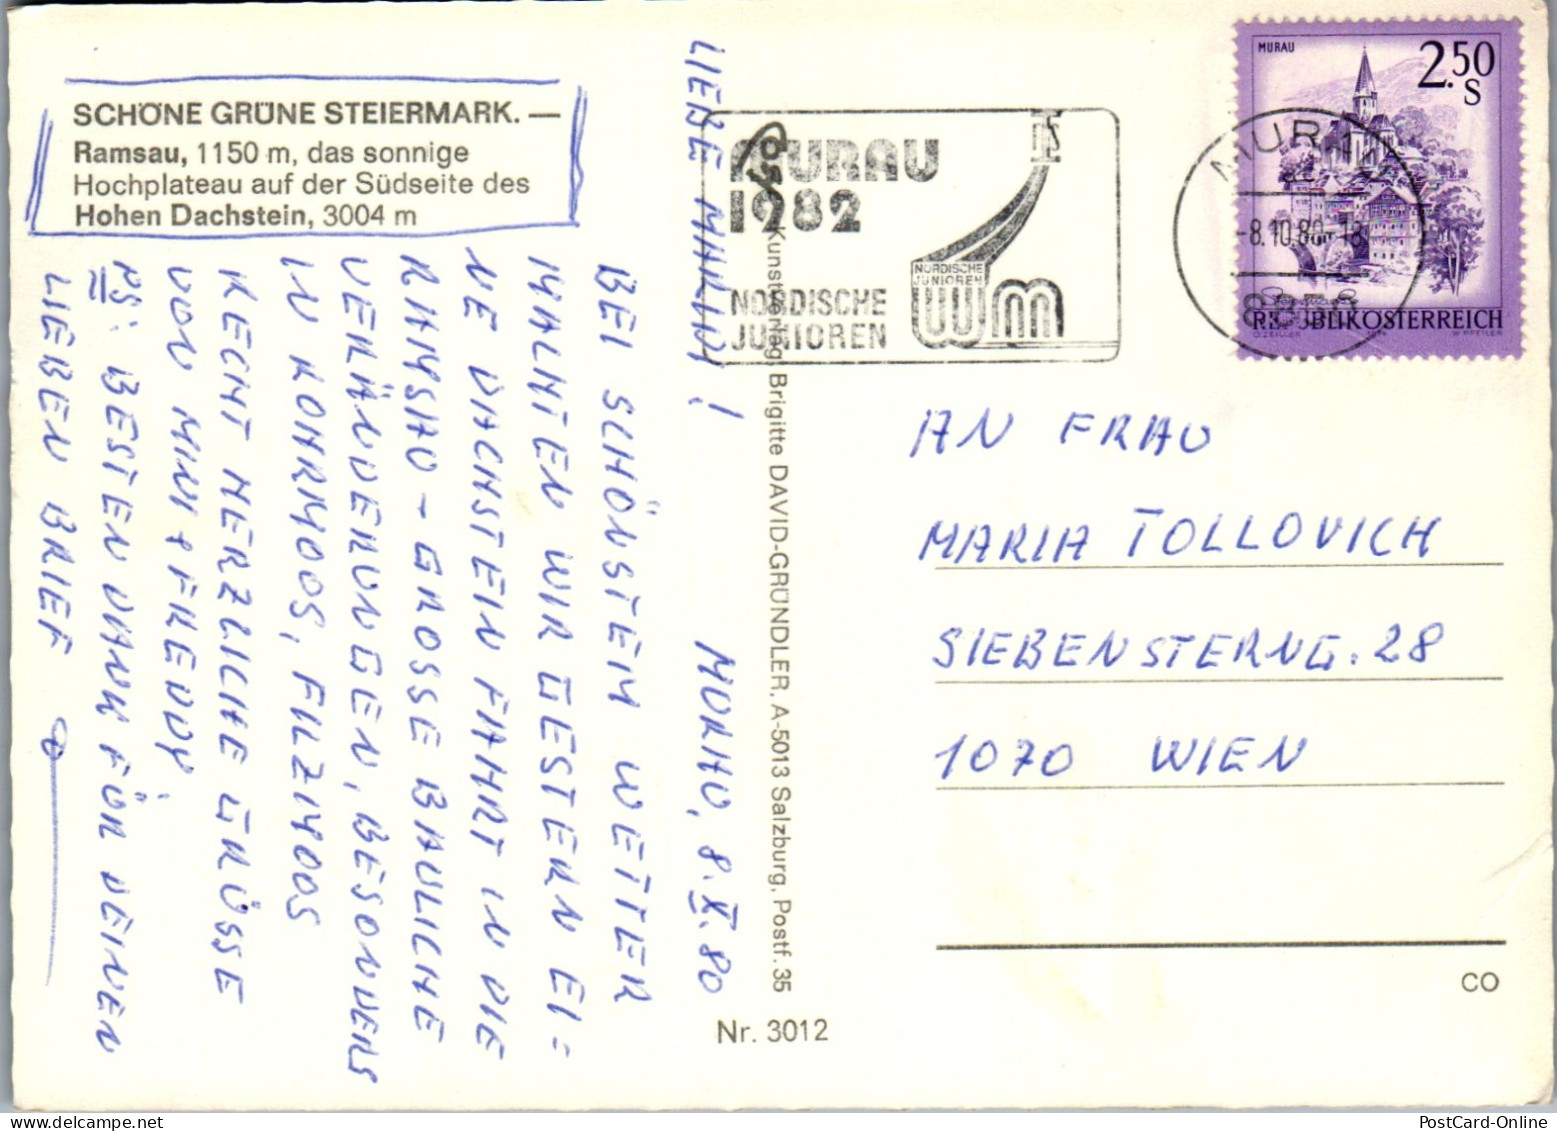 SCHÖNE GRÜNE STEIERMARK. —
Ramsau, 1150 m, das sonnige
Hochplateau auf der Südseite des
Hohen Dachstein, 3004 m
LIEBE MARIA! MURAU, 8.X.80
BEI SCHÖNSTEM WETTER
MACHTEN WIR GESTERN EI=
NE DACHSTEINFAHRT IN DIE
RAMSAU - GROSSE BAULICHE
VERÄNDERUNGEN, BESONDERS
IN ROHRMOOS, FILZMOOS
RECHT HERZLICHE GRÜSSE
VON MINI + FREDDY
PS: BESTEN DANK FÜR DEINEN
LIEBEN BRIEF
Kunstverlag Brigitte DAVID-GRÜNDLER, A-5013 Salzburg, Postf. 35
Nr. 3012
MURAU
1982
NORDISCHE
JUNIOREN
NORDISCHE
JUNIOREN
WM
MURAU
-8.10.80-18
MURAU
2.50
S
REPUBLIK ÖSTERREICH
AN FRAU
MARIA TOLLOVICH
SIEBENSTERNG. 28
1070 WIEN
CO
PostCard-Online